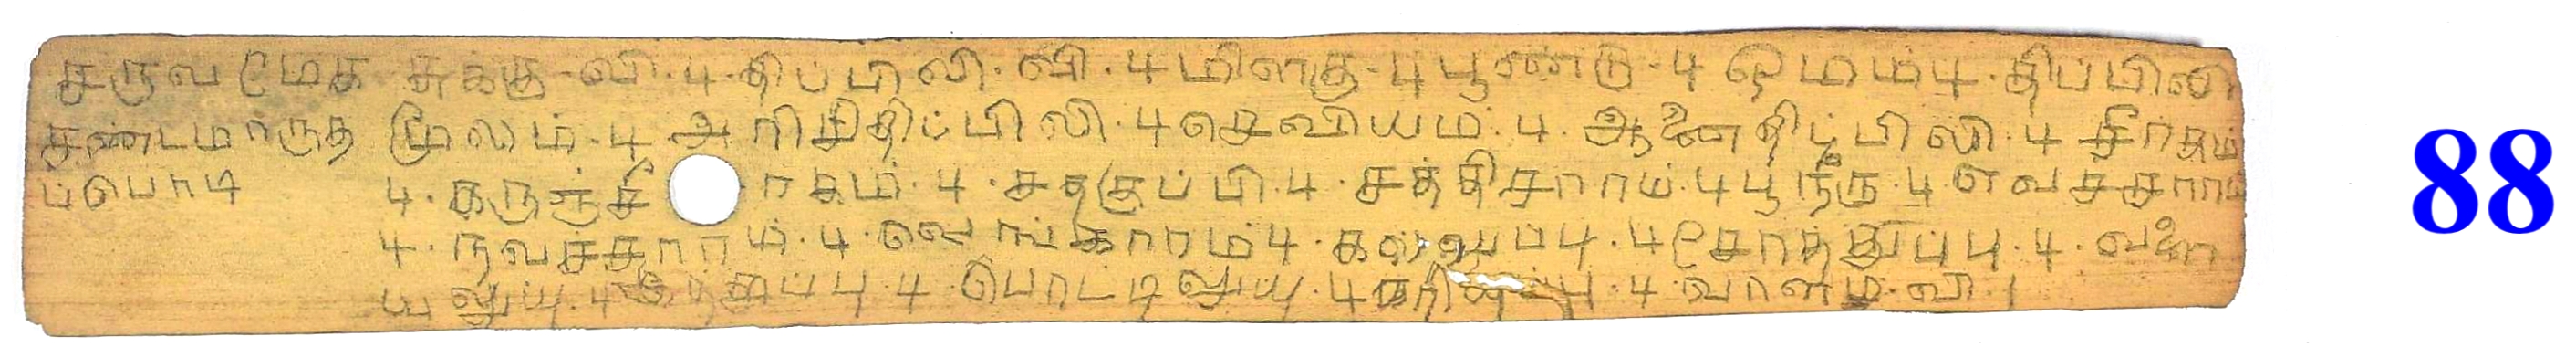 சருவமேக சுக்கு.வி.4.திப்பிலி.வி.4மிளகு.4பூண்டு.4 ஓமம்4.திப்பிலி
சண்டமாருத மூலம்.4 அரிசிதிப்பிலி.4செவியம்.4. ஆனைதிப்பிலி.4 சீரகம்
ப்பொடி 4.கருஞ்சீரகம்.4.சதகுப்பி.4.சத்திசாராய்.4பூநீரு.4.எவச்சாராம்
4.நவச்சாரரம்.4.வெங்காரம்4.கல்லுப்பு.4சோத்துப்பு.4.வளை
யலுப்பு.4 இந்துப்பு.4.பொட்டிலுப்பு.4கரியுப்பு.4.வாளம்.வி.
88